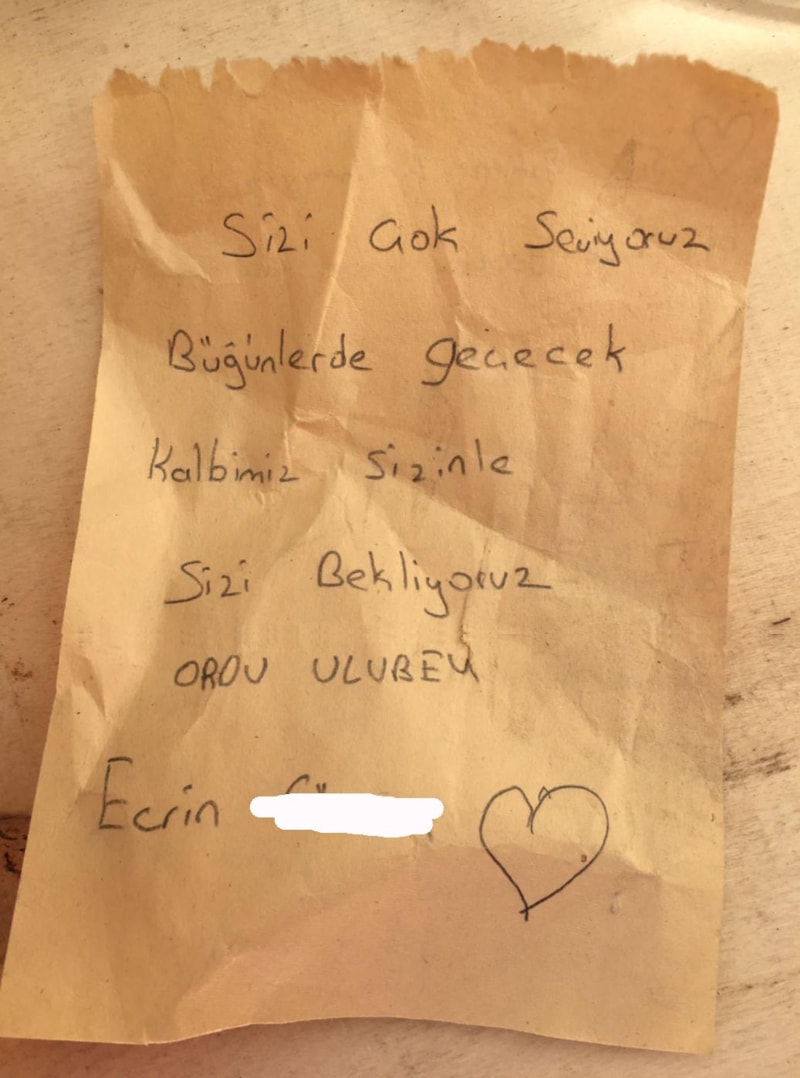 Sizi Çok Seviyoruz
Büğünlerde geçecek
Kalbimiz Sizinle
Sizi Bekliyoruz
ORDU ULUBEY
Ecrin